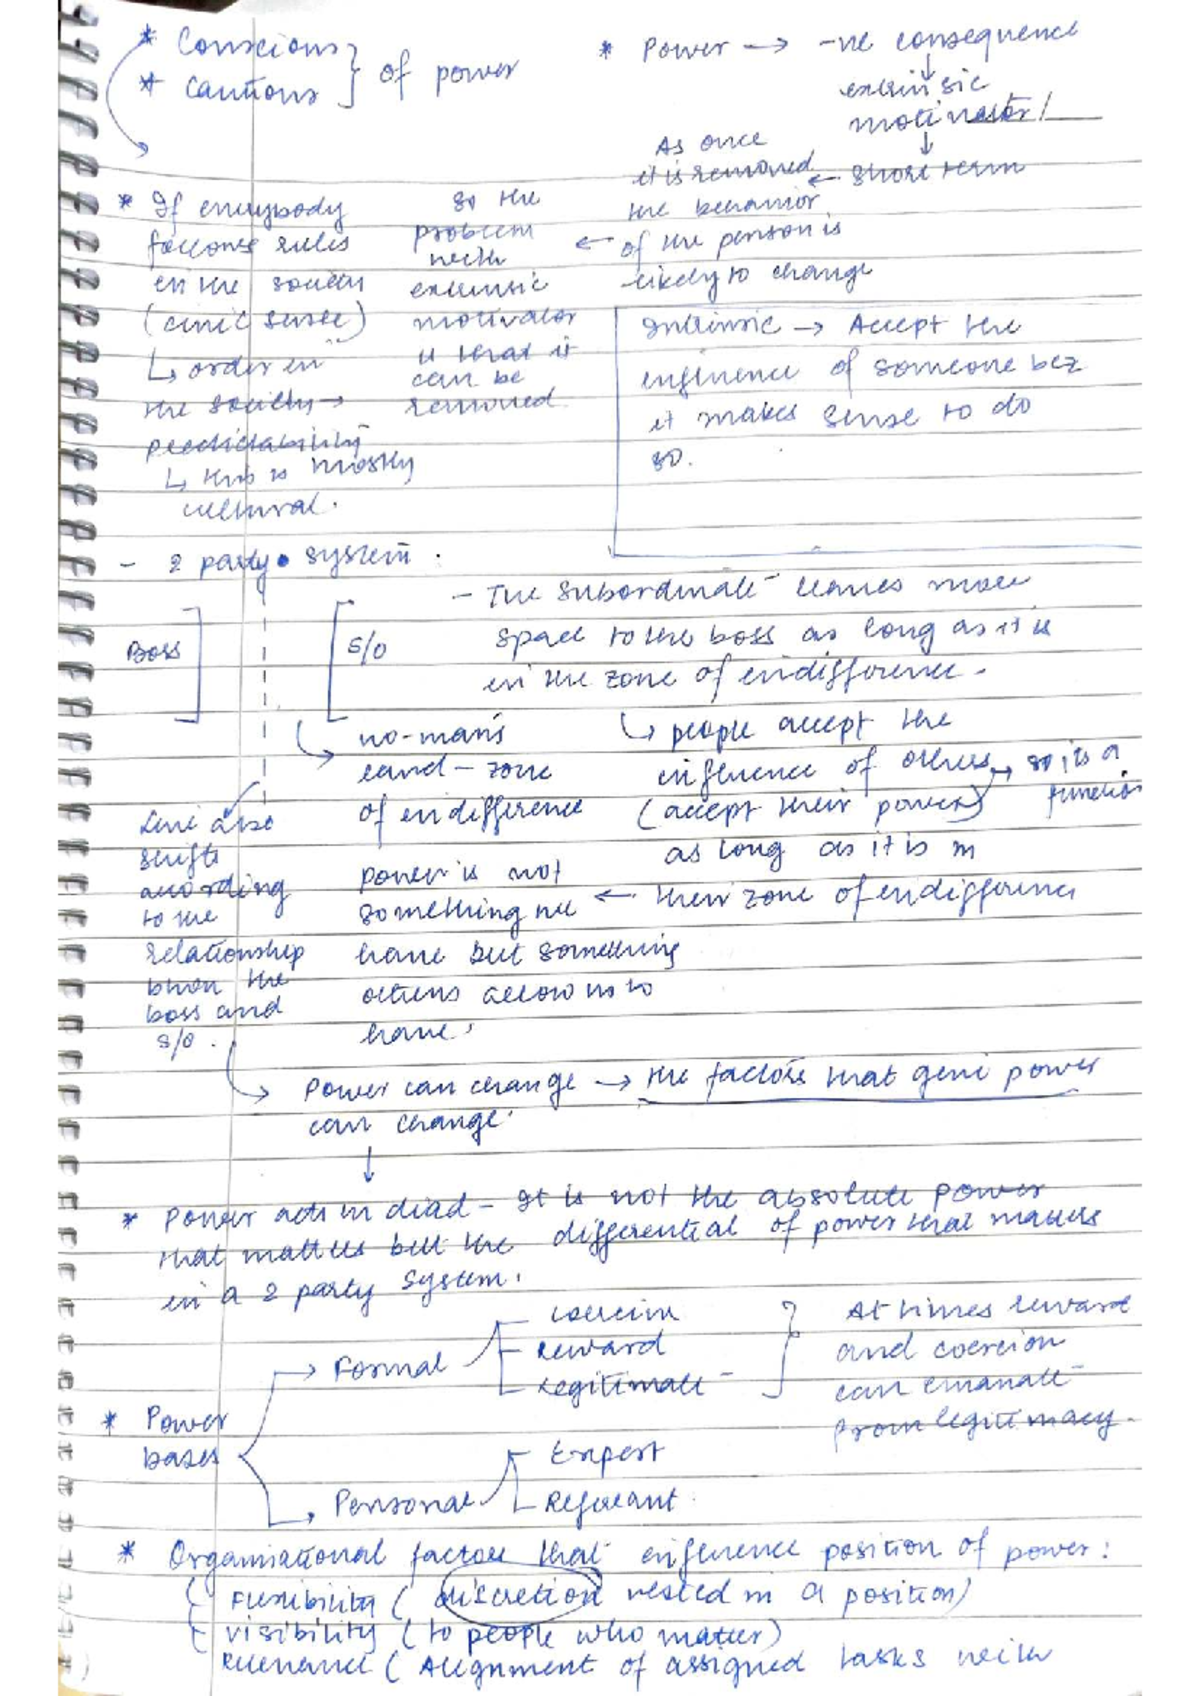 * Conscious } of power
* Cautious
* Power → -ve consequence
↓
extrinsic
motivator/
↓
← short term
As once
it is removed
the behavior
of the person is
likely to change
← so the
problem
with
extrinsic
motivator
is that it
can be
removed.
* If everybody
follows rules
in the society
(civic sense)
↳ order in
the society →
predictability
↳ this is mostly
cultural.
Intrinsic → Accept the
influence of someone bcz
it makes sense to do
so.
- 2 party system :
Boss
S/O
- The subordinate leaves more
space to the boss as long as it is
in the zone of indifference.
↳ no-man's
land - zone
of indifference
↳ people accept the
influence of others → so, is a
(accept their power) function
as long as it is in
their zone of indifference
← power is not
something we
have but something
others allow us to
have.
Line also
shifts
according
to the
relationship
btwn the
boss and
S/O.
↳ Power can change → the factors that give power
can change.
↓
* Power acts in diad - It is not the absolute power
that matters but the differential of power that matters
in a 2 party system.
* Power
bases
→ Formal
coercion
reward
legitimate
} At times reward
and coercion
can emanate
from legitimacy.
→ Personal
Expert
Referant
* Organisational factors that influence position of power :
Flexibility ( discretion vested in a position)
visibility ( to people who matter)
Relevance ( Alignment of assigned tasks with